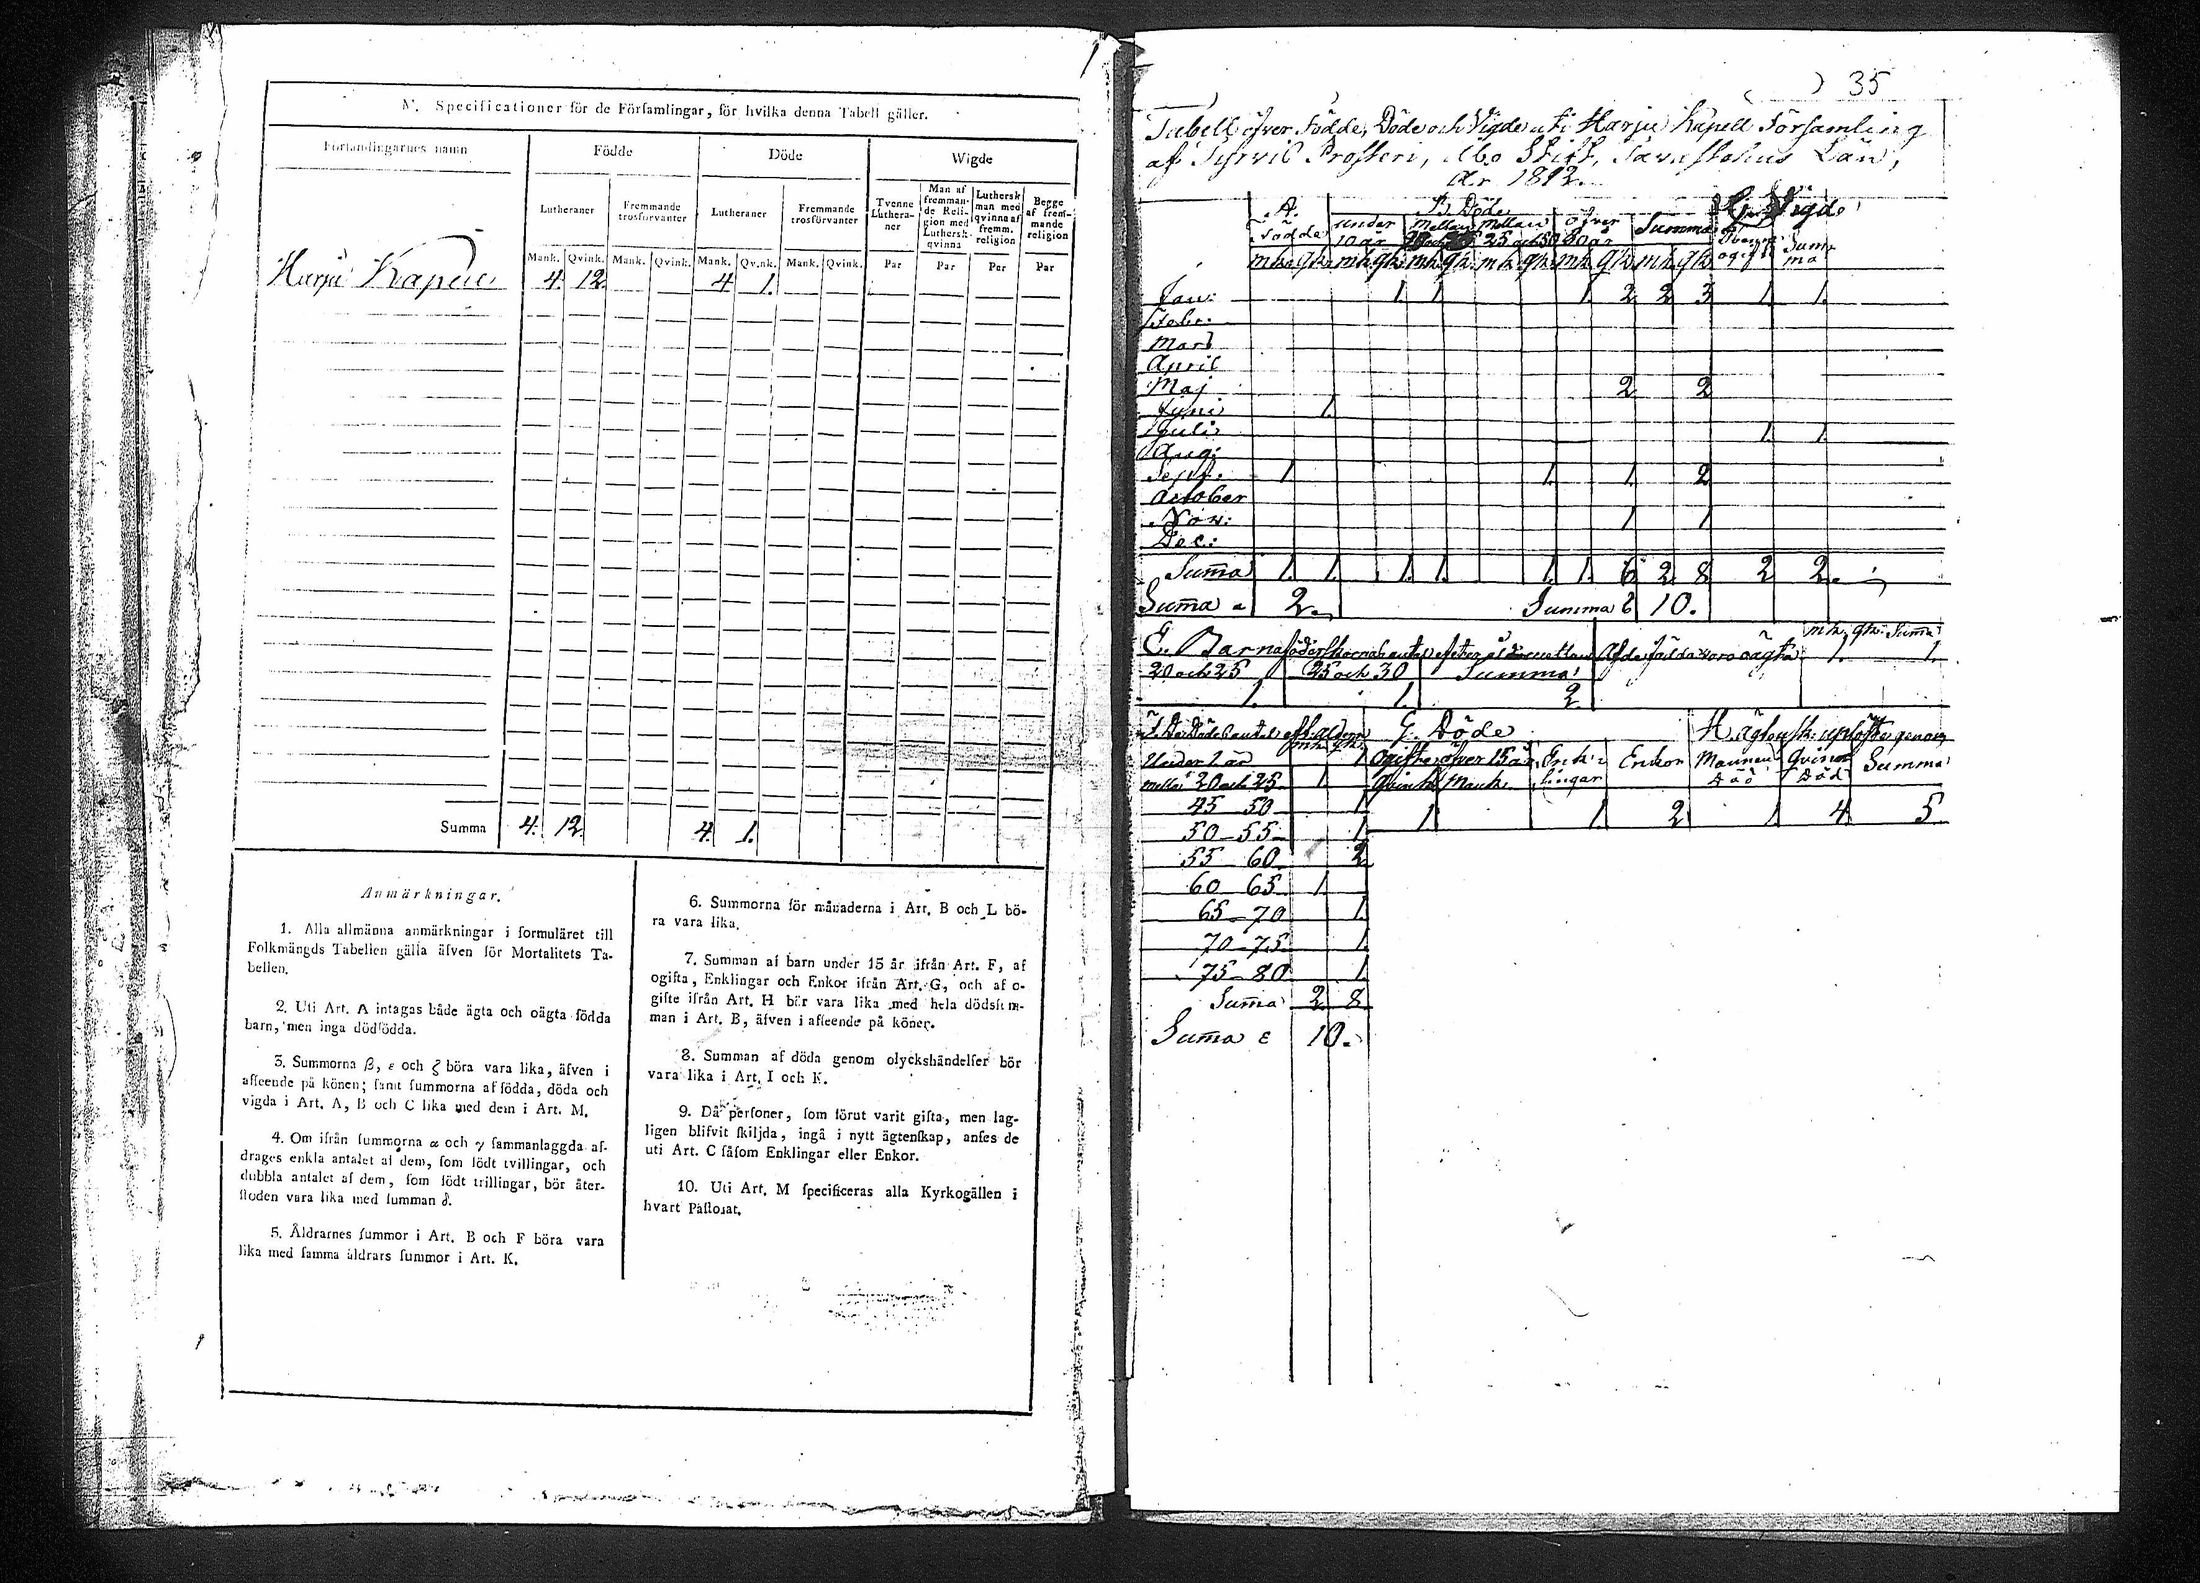 M. Specificationer för de Församlingar, för hvilka denna Tabell gäller.
Församlingarnes namn Födde Döde Wigde
Lutheraner Fremmande trosförvanter Lutheraner Fremmande trosförvanter Tvenne Lutheraner Man af fremmande Religion med Luthersk qvinna Luthersk man med qvinna af fremm. religion Begge af fremmande religion
Mank. Qvink. Mank. Qvink. Mank. Qvink. Mank. Qvink. Par Par Par Par
Harju Kapell 4. 12. 4 1.
Summa 4. 12. 4. 1.
Anmärkningar.
1. Alla allmänna anmärkningar i formuläret till
Folkmängds Tabellen gälla äfven för Mortalitets Ta-
bellen.
2. Uti Art. A intagas både ägta och oägta födda
barn, men inga dödfödda.
3. Summorna β, ε och ζ böra vara lika, äfven i
afseende på könen; samt summorna af födda, döda och
vigda i Art. A, B och C lika med dem i Art. M.
4. Om ifrån summorna α och γ sammanlaggda af-
drages enkla antalet af dem, som födt tvillingar, och
dubbla antalet af dem, som födt trillingar, bör åter-
stoden vara lika med summan δ.
5. Åldrarnes summor i Art. B och F böra vara
lika med samma åldrars summor i Art. K.
6. Summorna för månaderna i Art. B och L bö-
ra vara lika.
7. Summan af barn under 15 år ifrån Art. F, af
ogifta, Enklingar och Enkor ifrån Art. G, och af o-
gifte ifrån Art. H bör vara lika med hela dödssum-
man i Art. B, äfven i afseende på könen.
8. Summan af döda genom olyckshändelser bör
vara lika i Art. I och K.
9. Då personer, som förut varit gifta, men lag-
ligen blifvit skiljda, ingå i nytt ägtenskap, anses de
uti Art. C såsom Enklingar eller Enkor.
10. Uti Art. M specificeras alla Kyrkogällen i
hvart Pastorat.
35
Tabell öfver Födde, Döde och Vigde uti Harju Kapell Församling
af Tyrvis Prosteri, Åbo Stift, Tavastehus Län,
År 1812.
A. B. Döde Vigde
Födde under 10 år Mellan Mellan 25 och 50 öfver 50 år Summa Summa
mk qk mk qk mk qk mk qk mk qk mk qk
Jan: 1 1 1. 2 2 3 1. 1.
Febr:
Mart
April
Maj 2 2
Juni 1.
Juli 1. 1.
Aug:
Sept: 1 1. 1. 2
October
Nov: 1 1
Dec:
Suma 1. 1. 1. 1. 1. 1. 6 2 8 2 2.
Suma a 2. Summa b 10.
mk. qk. Suma
E. Barnaföderskornas antal efter ålder mellan Af de födda voro oägta 1. 1.
20 och 25 25 och 30 Summa
1. 1. 2
F. De Dödas antal eft. åldern G. Döde H. Ägtensk: uplöste genom
mk. qk.
Under 1 år 1 Ogifte öfver 15 år Enklingar Enkor Mannens Död Qvinnans Död Summa
mellan 20 och 25 1. Qvink Mank.
45 50 1 1 1. 2 1. 4 5
50 55 1.
55 60 2
60 65 1.
65 70 1.
70 75 1.
75 80 1.
Suma 2 8
Suma ε 10.